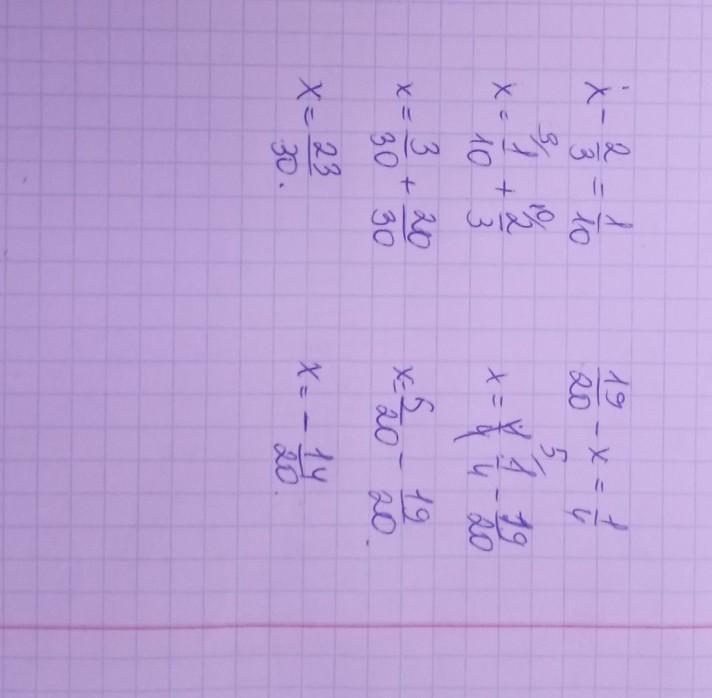 x - 2/3 = 1/10
x = 1/10 + 2/3
x = 3/30 + 20/30
x = 23/30.
19/20 - x = 1/4
x = 1/4 - 19/20
x = 5/20 - 19/20.
x = - 14/20.